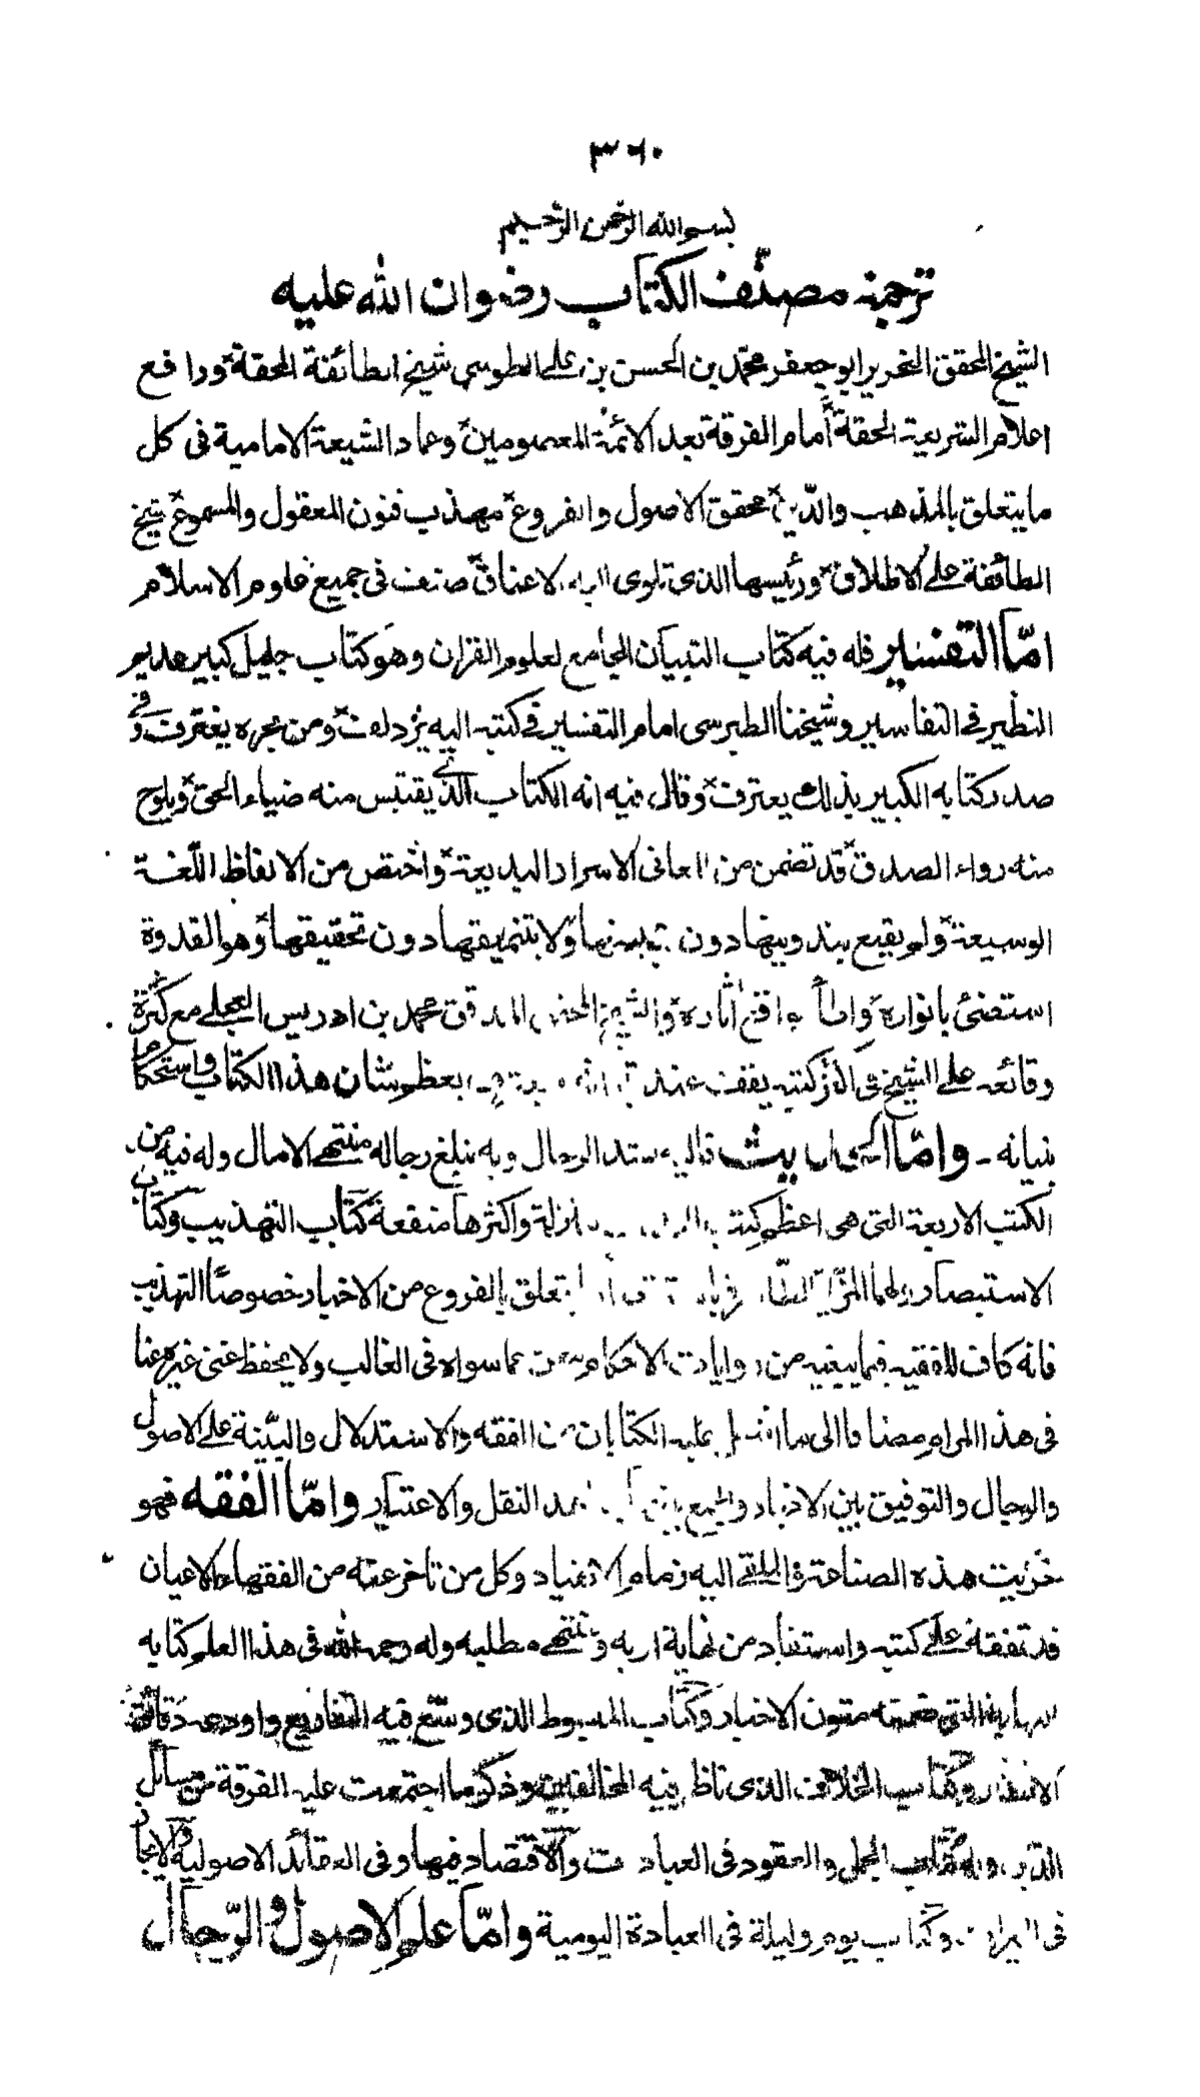 ٣٦٠
بسم الله الرحمن الرحيم
ترجمة مصنّف الكتاب رضوان الله عليه
الشيخ المحقق النحرير ابو جعفر محمّد بن الحسن بن على الطوسي شيخ الطائفة المحقة ورافع
اعلام الشريعة الحقة أمام الفرقة بعد الائمة المعصومين وعماد الشيعة الامامية فى كل
ما يتعلق بالمذهب والدّين محقق الاصول والفروع مهذب فنون المعقول والمسموع شيخ
الطائفة على الاطلاق ورئيسها الذى تلوى اليه الاعناق صنف فى جميع علوم الاسلام
امّا التفسير فله فيه كتاب التبيان الجامع لعلوم القران وهو كتاب جليل كبير عديم
النظير فى التفاسير وشيخنا الطبرسى امام التفسير فى كتبه اليه يزدلف ومن بحره يغترف وفى
صدر كتابه الكبير بذلك يعترف وقال فيه انه الكتاب الذي يقتبس منه ضياء الحق ويلوح
منه رواء الصدق قد تضمن من المعانى الاسرار البديعة واختص من الالفاظ اللّغة
الوسيعة ولم يقنع بتدوينها دون تبيينها ولا بتنميقها دون تحقيقها وهو القدوة
استضئ بانواره واطأ مواقع اثاره والشيخ المحقق المدقق محمد بن ادريس العجلى مع كثرة
وقائعه على الشيخ فى اكثر كتبه يقف عند بعظم شان هذا الكتاب واستحكام
بنيانه - وامّا الحديث فاليه تشد الرحال وبه تبلغ رجاله منتهى الامال وله فيه من
الكتب الاربعة التى هى اعظم كتب منزلة واكثرها منفعة كتاب التهذيب وكتاب
الاستبصار ولهما المزية يتعلق بالفروع من الاخبار خصوصًا التهذيب
فانه كاف للفقيه فيما يبتغيه من روايات الاحكام عما سواه فى الغالب ولا يحفظ عنى غيره عنا
فى هذا المرام مضافا الى ما اشتمل عليه الكتابان من الفقه والاستدلال والبيّنة على الاصول
والرجال والتوفيق بين الاخبار والجمع بينها النقل والاعتبار وامّا الفقه فهو
خرّيت هذه الصناعة والملقى اليه زمام الانقياد وكل من تاخر عنه من الفقهاء الاعيان
قد تفقه على كتبه واستفاد من نهاية اربه ومنتهى مطلبه وله رحمه الله فى هذا العلم كتابه
النهاية التى ضمنه متون الاخبار وكتاب المبسوط الذى وسّع فيه التفاريع واودعه دقائق
الانظار وكتاب الخلاف الذى ناظر فيه المخالفين وذكر ما اجتمعت عليه الفرقة من مسائل
الدّين وله كتاب الجمل والعقود فى العبادات والاقتصاد فيها وفى العقائد الاصولية والايجاز
فى الميراث وكتاب يوم وليلة فى العبادة اليومية وامّا علم الاصول والرّجال